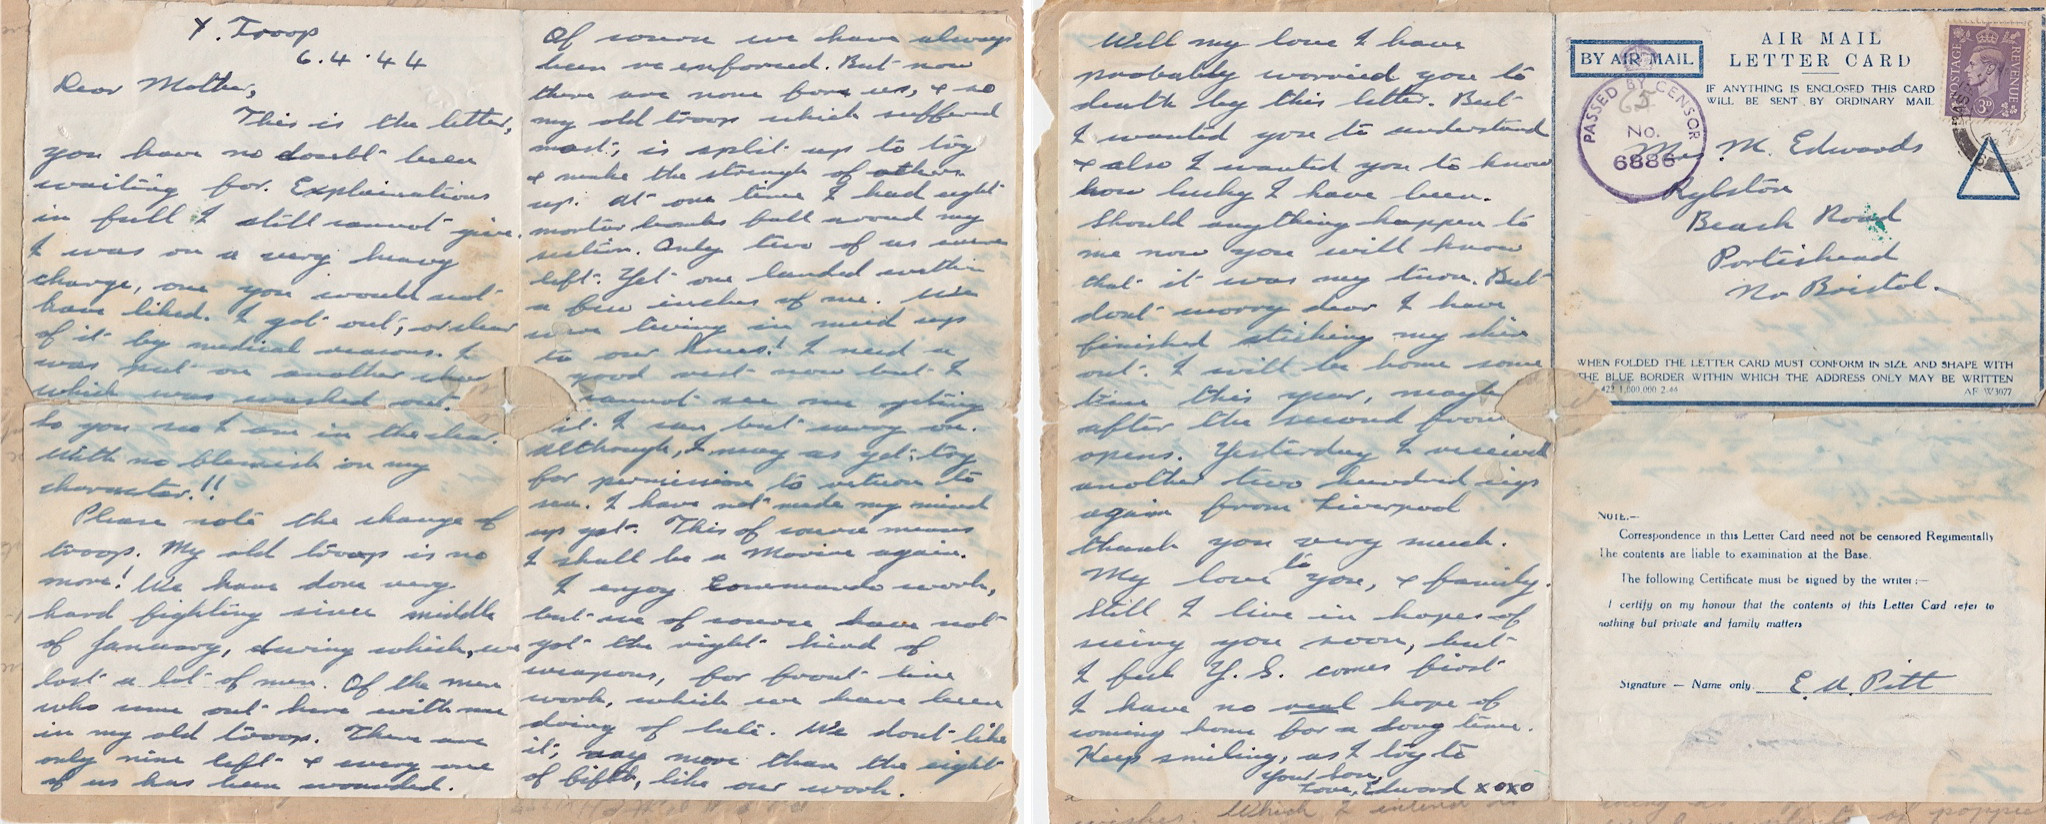 Y. Troop
6.4.44
Dear Mother,
This is the letter,
you have no doubt been
waiting for. Explainations
in full I still cannot give.
I was on a very heavy
charge, one you would not
have liked. I got out, or clear
of it by medical reasons. I
was put on another
which was washed out.
So you see I am in the clear.
With no blemish on my
character!!
Please note the change of
troop. My old troop is no
more! We have done very
hard fighting since middle
of January, during which, we
lost a lot of men. Of the men
who came out here with me
in my old troop. There are
only nine left & every one
of us has been wounded.
Of course we have always
been re enforced. But now
there are none for us, & so
my old troop which suffered
most, is split up to try
& make the strength of others
up. At one time I had eight
mortar bombs fall round my
section. Only two of us were
left. Yet one landed within
a few inches of me. We
were living in mud up
to our knees! I need a
good rest now but I
cannot see me getting
it. I can but carry on.
Although, I may as yet, try
for permission to return to
sea. I have not made my mind
up yet. This of course means
I shall be a Marine again.
I enjoy Commando work,
but we of course have not
got the right kind of
weapons, for front line
work, which we have been
doing of late. We dont like
it, any more than the eight
of fifth, like our work.
Well my love I have
probably worried you to
death by this letter. But
I wanted you to understand
& also I wanted you to know
how lucky I have been.
Should anything happen to
me now you will know
that it was my turn. But
dont worry dear I have
finished sticking my chin
out. I will be home some
time this year, maybe
after the second front
opens. Yesterday I received
another two hundred cigs
again from Liverpool
thank you very much.
My love to you, & family.
Still I live in hopes of
seeing you soon, but
I feel Y. S. comes first
I have no real hope of
coming home for a long time.
Keep smiling, as I try to
Your Son,
Love, Edward xoxo
BY AIR MAIL
AIR MAIL
LETTER CARD
IF ANYTHING IS ENCLOSED THIS CARD
WILL BE SENT BY ORDINARY MAIL
POSTAGE REVENUE
3D
PASSED BY CENSOR
No.
6886
Mrs M. Edwards
Rylston
Beach Road
Portishead
Nr Bristol.
WHEN FOLDED THE LETTER CARD MUST CONFORM IN SIZE AND SHAPE WITH
THE BLUE BORDER WITHIN WHICH THE ADDRESS ONLY MAY BE WRITTEN
422 1,000,000 2.44 AF W3077
NOTE.—
Correspondence in this Letter Card need not be censored Regimentally
The contents are liable to examination at the Base.
The following Certificate must be signed by the writer:—
I certify on my honour that the contents of this Letter Card refer to
nothing but private and family matters
Signature — Name only E A Pitt